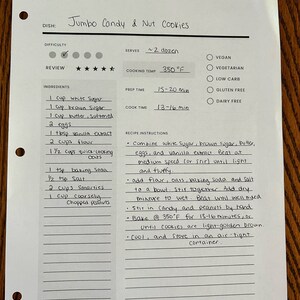 DISH: Jumbo Candy & Nut Cookies
DIFFICULTY
REVIEW
SERVES ~2 dozen
COOKING TEMP 350°F
PREP TIME 15-20 min
COOK TIME 13-16 min
VEGAN
VEGETARIAN
LOW CARB
GLUTEN FREE
DAIRY FREE
INGREDIENTS
1 cup white sugar
1 cup brown sugar
1 cup butter, softened
2 eggs
1 tbsp vanilla extract
2 cups flour
1 ½ cups quick-cooking
oats
1 tsp baking soda
½ tsp salt
2 cups Smarties
1 cup coarsely
chopped peanuts
RECIPE INSTRUCTIONS
- Combine white sugar, brown sugar, butter,
eggs, and vanilla extract. Beat at
medium speed (or 1/2) until light
and fluffy.
- add flour, oats, baking soda and salt
to a bowl. Stir together. Add dry
mixture to wet. Beat until well mixed
- Stir in candy and peanuts by hand
- Bake @ 350°F for 13-16 minutes, or
until cookies are light golden brown
- Cool, and store in an air tight
container.